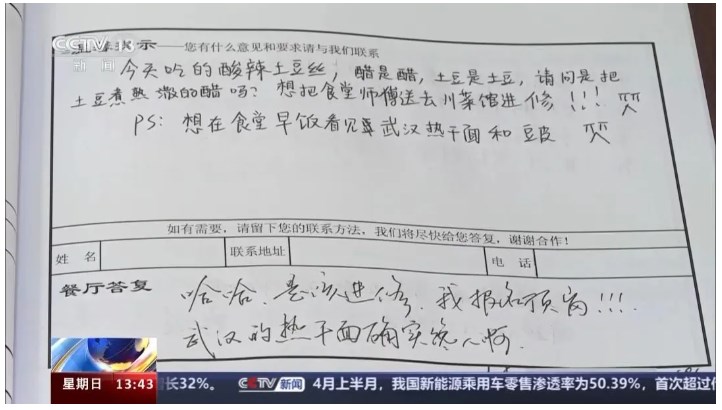 CCTV 13
新闻
示——您有什么意见和要求请与我们联系
今天吃的酸辣土豆丝,醋是醋,土豆是土豆,请问是把
土豆煮熟泼的醋吗?想把食堂师傅送去川菜馆进修!!!
PS:想在食堂早饭看见 武汉热干面和豆皮
如有需要,请留下您的联系方法,我们将尽快给您答复,谢谢合作!
姓 名
联系地址
电 话
餐厅答复
哈哈.应该进修.我报名顶岗!!!.
武汉的热干面确实馋人啊.
星期日 13:43
长32%。 CCTV 新闻 4月上半月,我国新能源乘用车零售渗透率为50.39%,首次超过